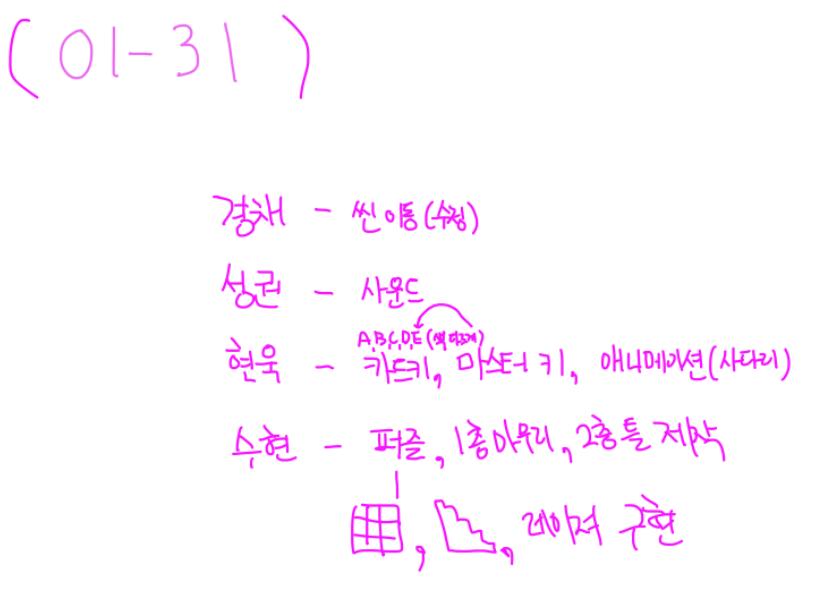 (01-31)
경채 - 씬 이동(수정)
성권 - 사운드
A,B,C,D,E (색 다르게)
현욱 - 카드키, 마스터 키, 애니메이션(사다리)
수현 - 퍼즐, 1층 마무리, 2층 틀 제작
, , 레이져 구현